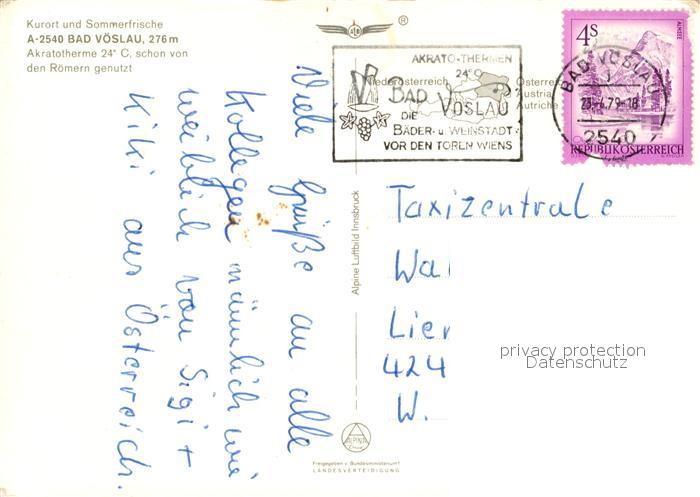 Kurort und Sommerfrische
A-2540 BAD VÖSLAU, 276 m
Akratotherme 24° C, schon von
den Römern genutzt
Viele Grüße an alle
Kollegen männlich wie
weiblich von Sigi +
Kiki aus Österreich.
®
Alpine Luftbild Innsbruck
ALPINA
Freigegeben v. Bundesministerium f.
LANDESVERTEIDIGUNG
Niederösterreich
Österreich
Austria
Autriche
AKRATO-THERMEN
24°C
BAD VÖSLAU
DIE
BÄDER- u. WEINSTADT
VOR DEN TOREN WIENS
BAD VÖSLAU
23.-4.79-18
2540
4S
ALMSEE
REPUBLIK ÖSTERREICH
Taxizentrale
Wal
Lier
424
W.
privacy protection
Datenschutz